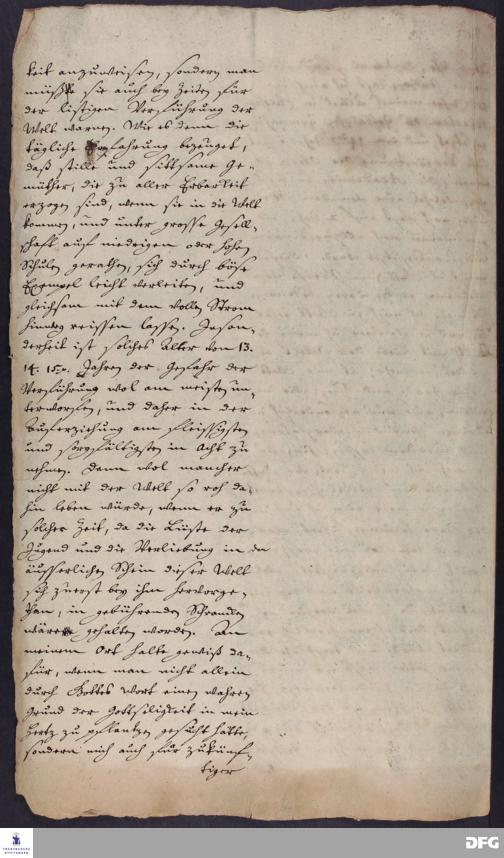 keit anzuweisen, sondern man
müsse sie auch bey Zeiten für
der listigen Verführung der
Welt warnen. Wie es denn die
tägliche Erfahrung bezeuget,
daß stille und sittsame Ge-
müther, die zu aller Erbarkeit
erzogen sind, wenn sie in die Welt
kommen, und unter grosse Gesell-
schaft auf niedrigen oder hohen
Schulen gerathen, sich durch böse
Exempel leicht verleiten, und
gleichsam mit dem vollen Strom
hinweg reissen lassen. Inson-
derheit ist solches Alter von 13.
14. 15. Jahren der Gefahr der
Verführung wol am meisten un-
terworffen, und daher in der
Auferziehung am fleissigsten
und sorgfältigsten in Acht zu
nehmen. Denn wol mancher
nicht mit der Welt so roh da-
hin leben würde, wenn er zu
solcher Zeit, da die Lüste der
Jugend und die Verliebung in den
äusserlichen Schein dieser Welt
sich zuerst bey ihm hervorge-
than, in gebührenden Schrancken
wäre gehalten worden. An
meinem Ort halte gewiß da-
für, wenn man nicht allein
durch Gottes Wort einen wahren
Grund der Gottseligkeit in mein
Hertz zu pflantzen gesucht hätte,
sondern mich auch für zukünf-
tiger
FRANCKESCHE
STIFTUNGEN
DFG